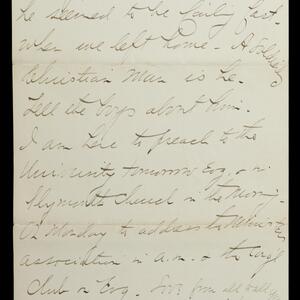 he seemed to be failing fast
when we left home - A
Christian man is he.
Tell the boys about him.
I am here to preach to the
University tomorrow Eve, & in
Plymouth Church in the Morning.
On Monday to address the Ministers
association in a.m. & the Cong'l
Club in Eve.